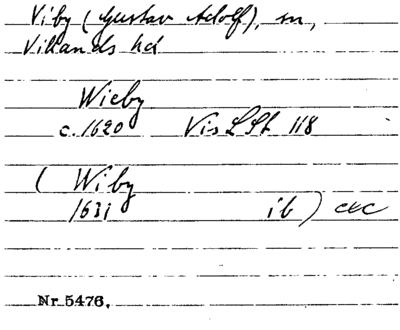 Viby (Gustav Adolf), sn,
Villands hd
Wieby
c. 1620 Vis LSt 118
( Wiby
1631 ib ) etc
Nr 5476.